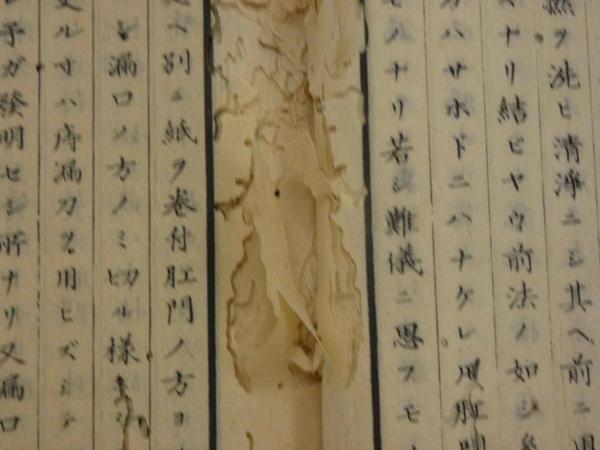 然ヲ洗ヒ清淨ニシ其ヘ前ニ用
ナリ結ビヤウ前法ノ如シ
ハサホドニハナケレ𪜈肛門
モノナリ若シ難儀ニ思フモノ
ヘ別ニ紙ヲ卷付肛門ノ方ヨ
漏口ノ方ノミ切ル樣
ルヿハ痔漏刀ヲ用ヒズシテ
予ガ發明セシ所ナリ又漏口